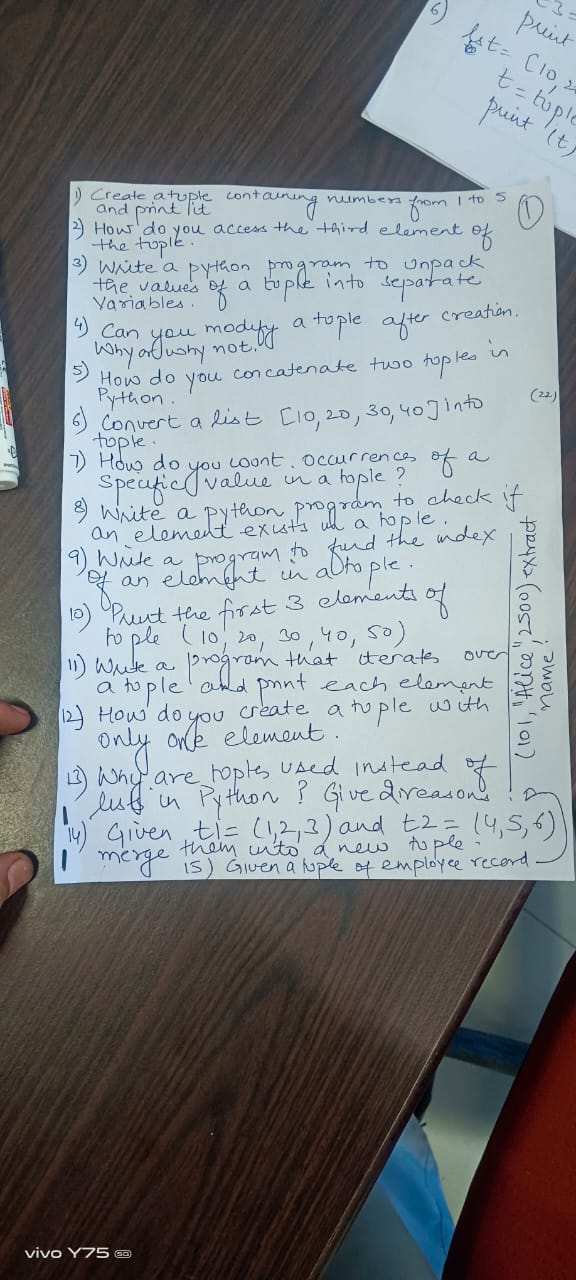 6)
print
lst= [10, 2
t = tuple
print (t)
1) Create a tuple containing numbers from 1 to 5
and print it
1
2) How do you access the third element of
the tuple.
3) Write a python program to unpack
the values of a tuple into separate
Variables.
4) Can you modify a tuple after creation.
Why or why not.
5) How do you concatenate two tuples in
Python.
(22)
6) Convert a list [10, 20, 30, 40] into
tuple.
7) How do you count occurrences of a
specific value in a tuple ?
8) Write a python program to check if
an element exists in a tuple.
9) Write a program to find the index
of an element in a tuple.
10) Print the first 3 elements of
tuple (10, 20, 30, 40, 50)
11) Write a program that iterates over
a tuple and print each element
12) How do you create a tuple with
only one element.
13) Why are tuples used instead of
lists in Python ? Give 2 reasons.
14) Given t1= (1,2,3) and t2 = (4,5,6)
merge them into a new tuple.
15) Given a tuple of employee record
(101, "Alice", 2500) extract
name.
vivo Y75 5G